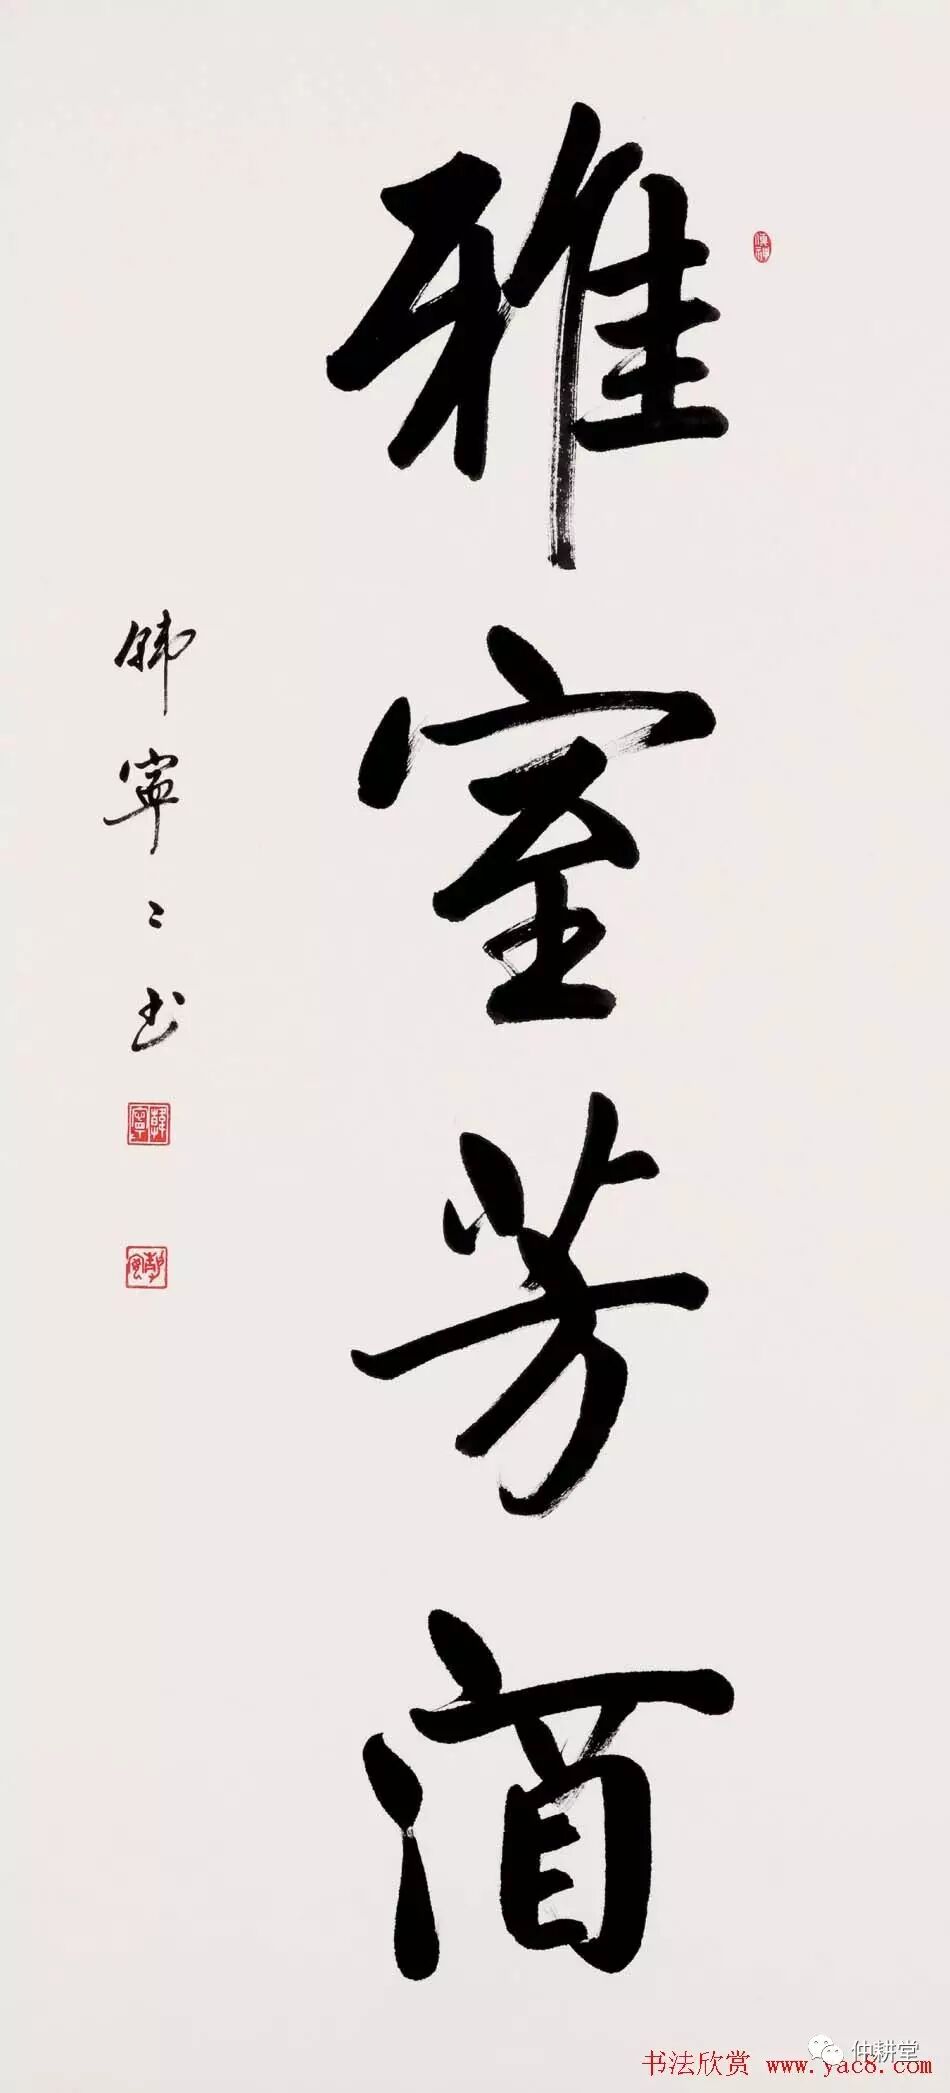 雅室芳酒
韩寧〻书
韓寧
仲耕堂
书法欣赏 www.yac8.com